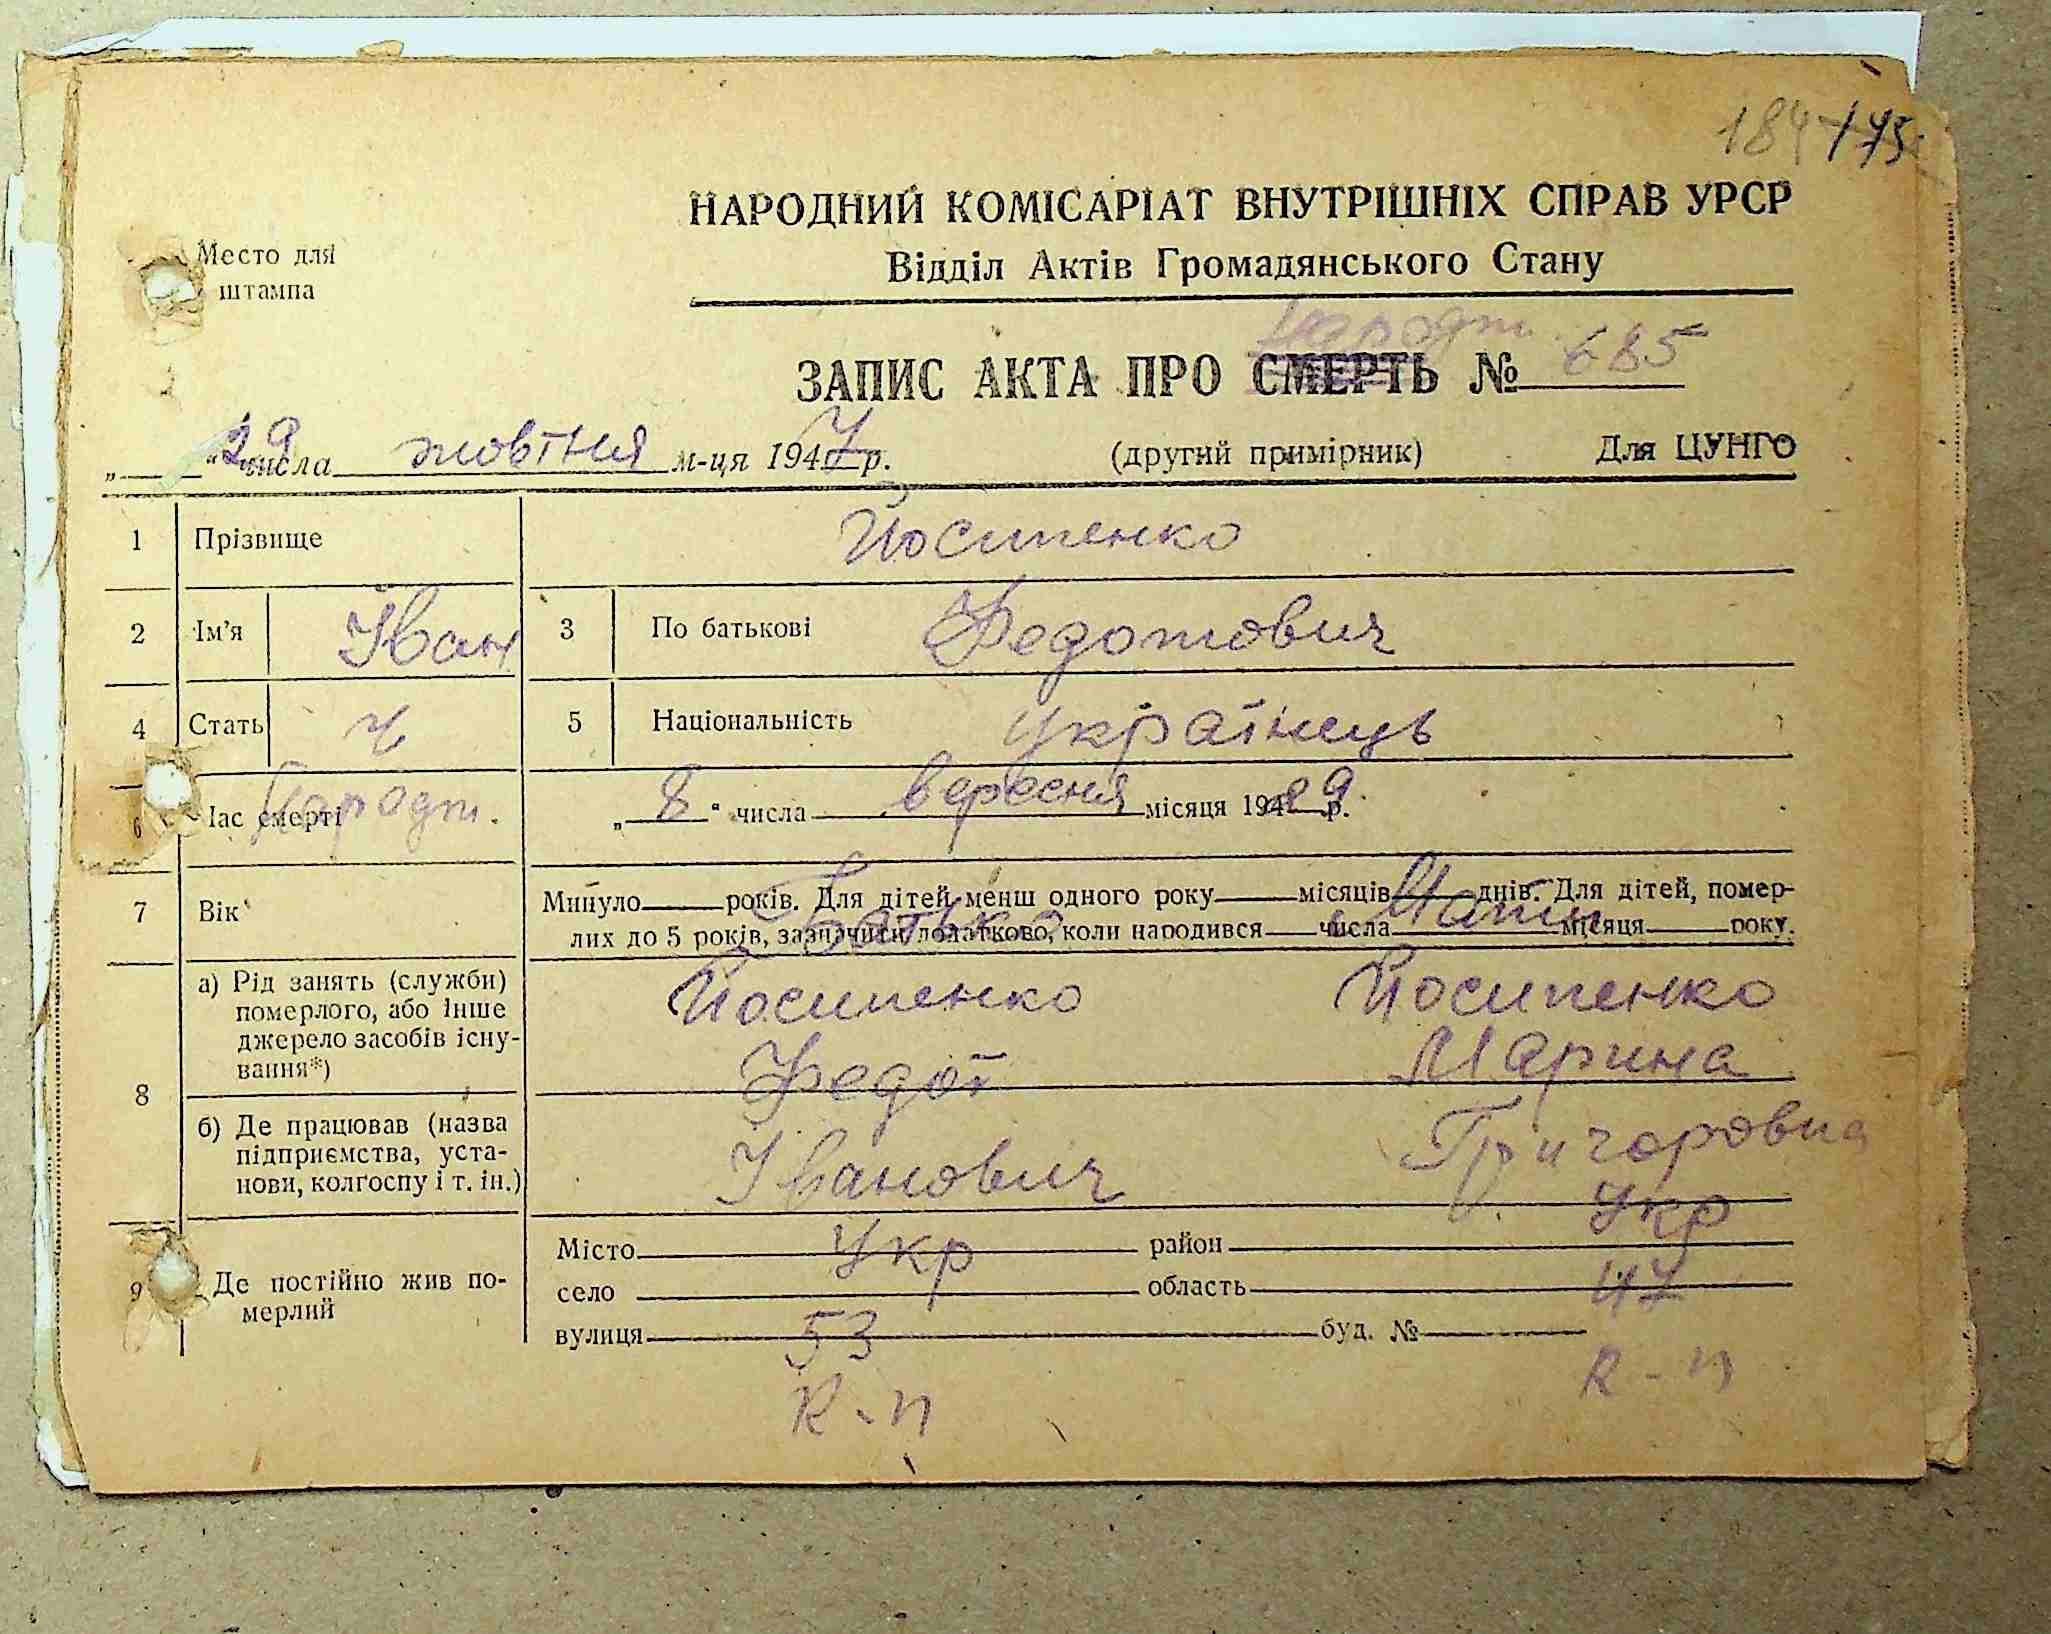 184 175
НАРОДНИЙ КОМІСАРІАТ ВНУТРІШНІХ СПРАВ УРСР
Место для штампа
Відділ Актів Громадянського Стану
народж.
ЗАПИС АКТА ПРО СМЕРТЬ № 685
„ 29 “ числа жовтня м-ця 1947 р. (другий примірник) Для ЦУНГО
1 Прізвище Йосипенко
2 Ім'я Іван 3 По батькові Федотович
4 Стать ч 5 Національність Українець
6 Час смерті народж. „ 8 “ числа вересня місяця 19 р.
7 Вік Минуло років. Для дітей менш одного року місяців днів. Для дітей, помер-
лих до 5 років, зазначити додатково, коли народився числа місяця року.
Батько Мати
8 а) Рід занять (служби) померлого, або інше джерело засобів існу-вання*)
Йосипенко Йосипенко
Федот Марина
б) Де працював (назва підприємства, уста-нови, колгоспу і т. ін.)
Іванович Григоровна
9 Де постійно жив по-мерлий
Місто Укр район Укр
село область 47
вулиця 53 буд. №
к-п к-п